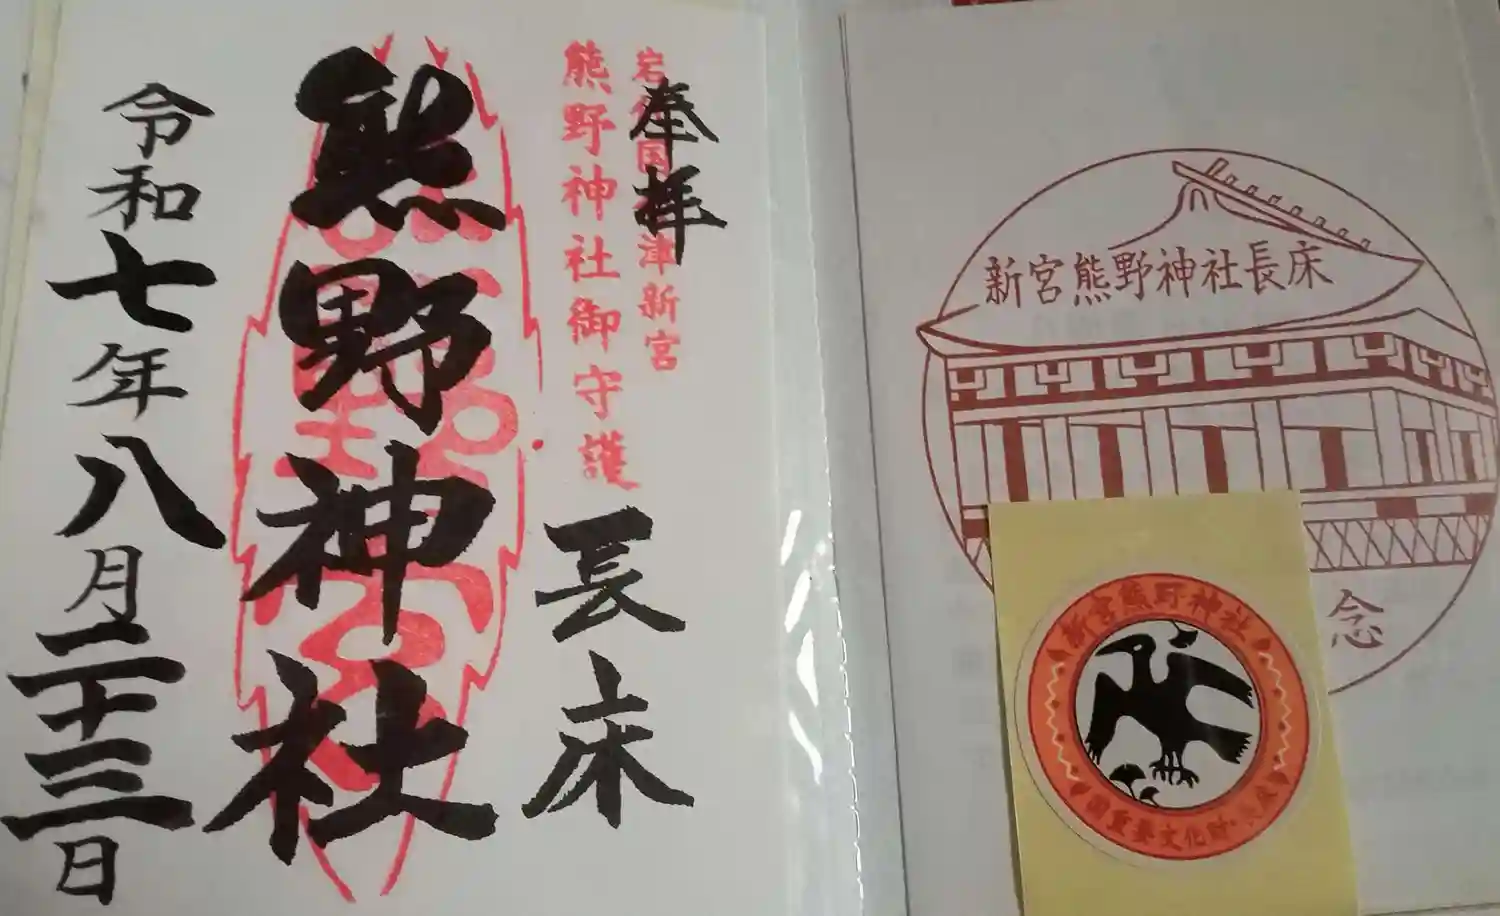 奉拝
岩代国会津新宮
熊野神社御守護
長床
熊野神社
令和七年八月二十三日
新宮熊野神社長床
念
新宮熊野神社
国重要文化財・長床